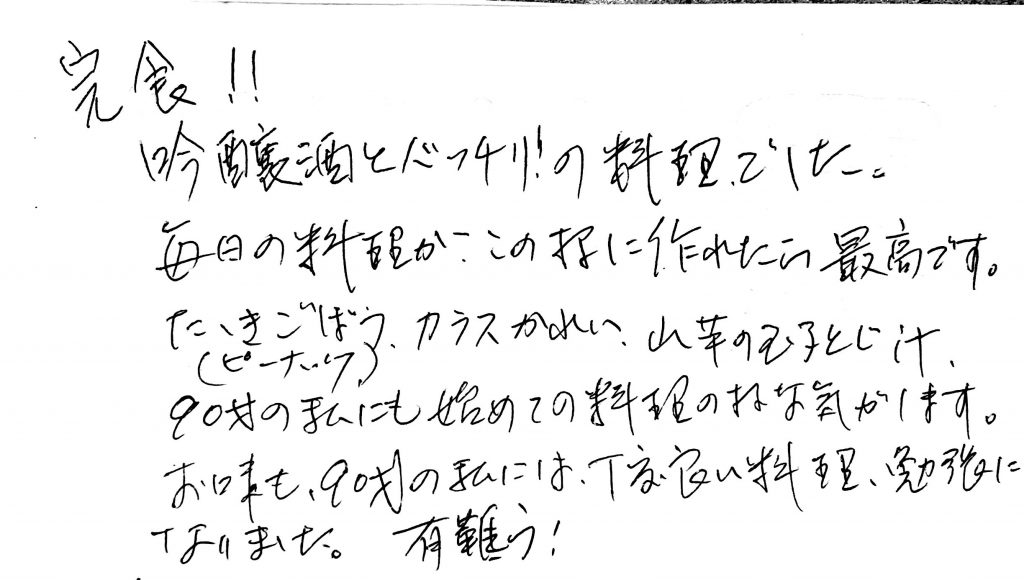 完食!!
吟醸酒とバッチリ!の料理でした。
毎日の料理がこの様に作れたら最高です。
たゝきごぼう、カラスかれい、山芋の玉子とじ汁、
(ピーナッツ)
90才の私にも始めての料理の様な気がします。
お味も、90才の私には、丁度良い料理、勉強に
なりました。 有難う!